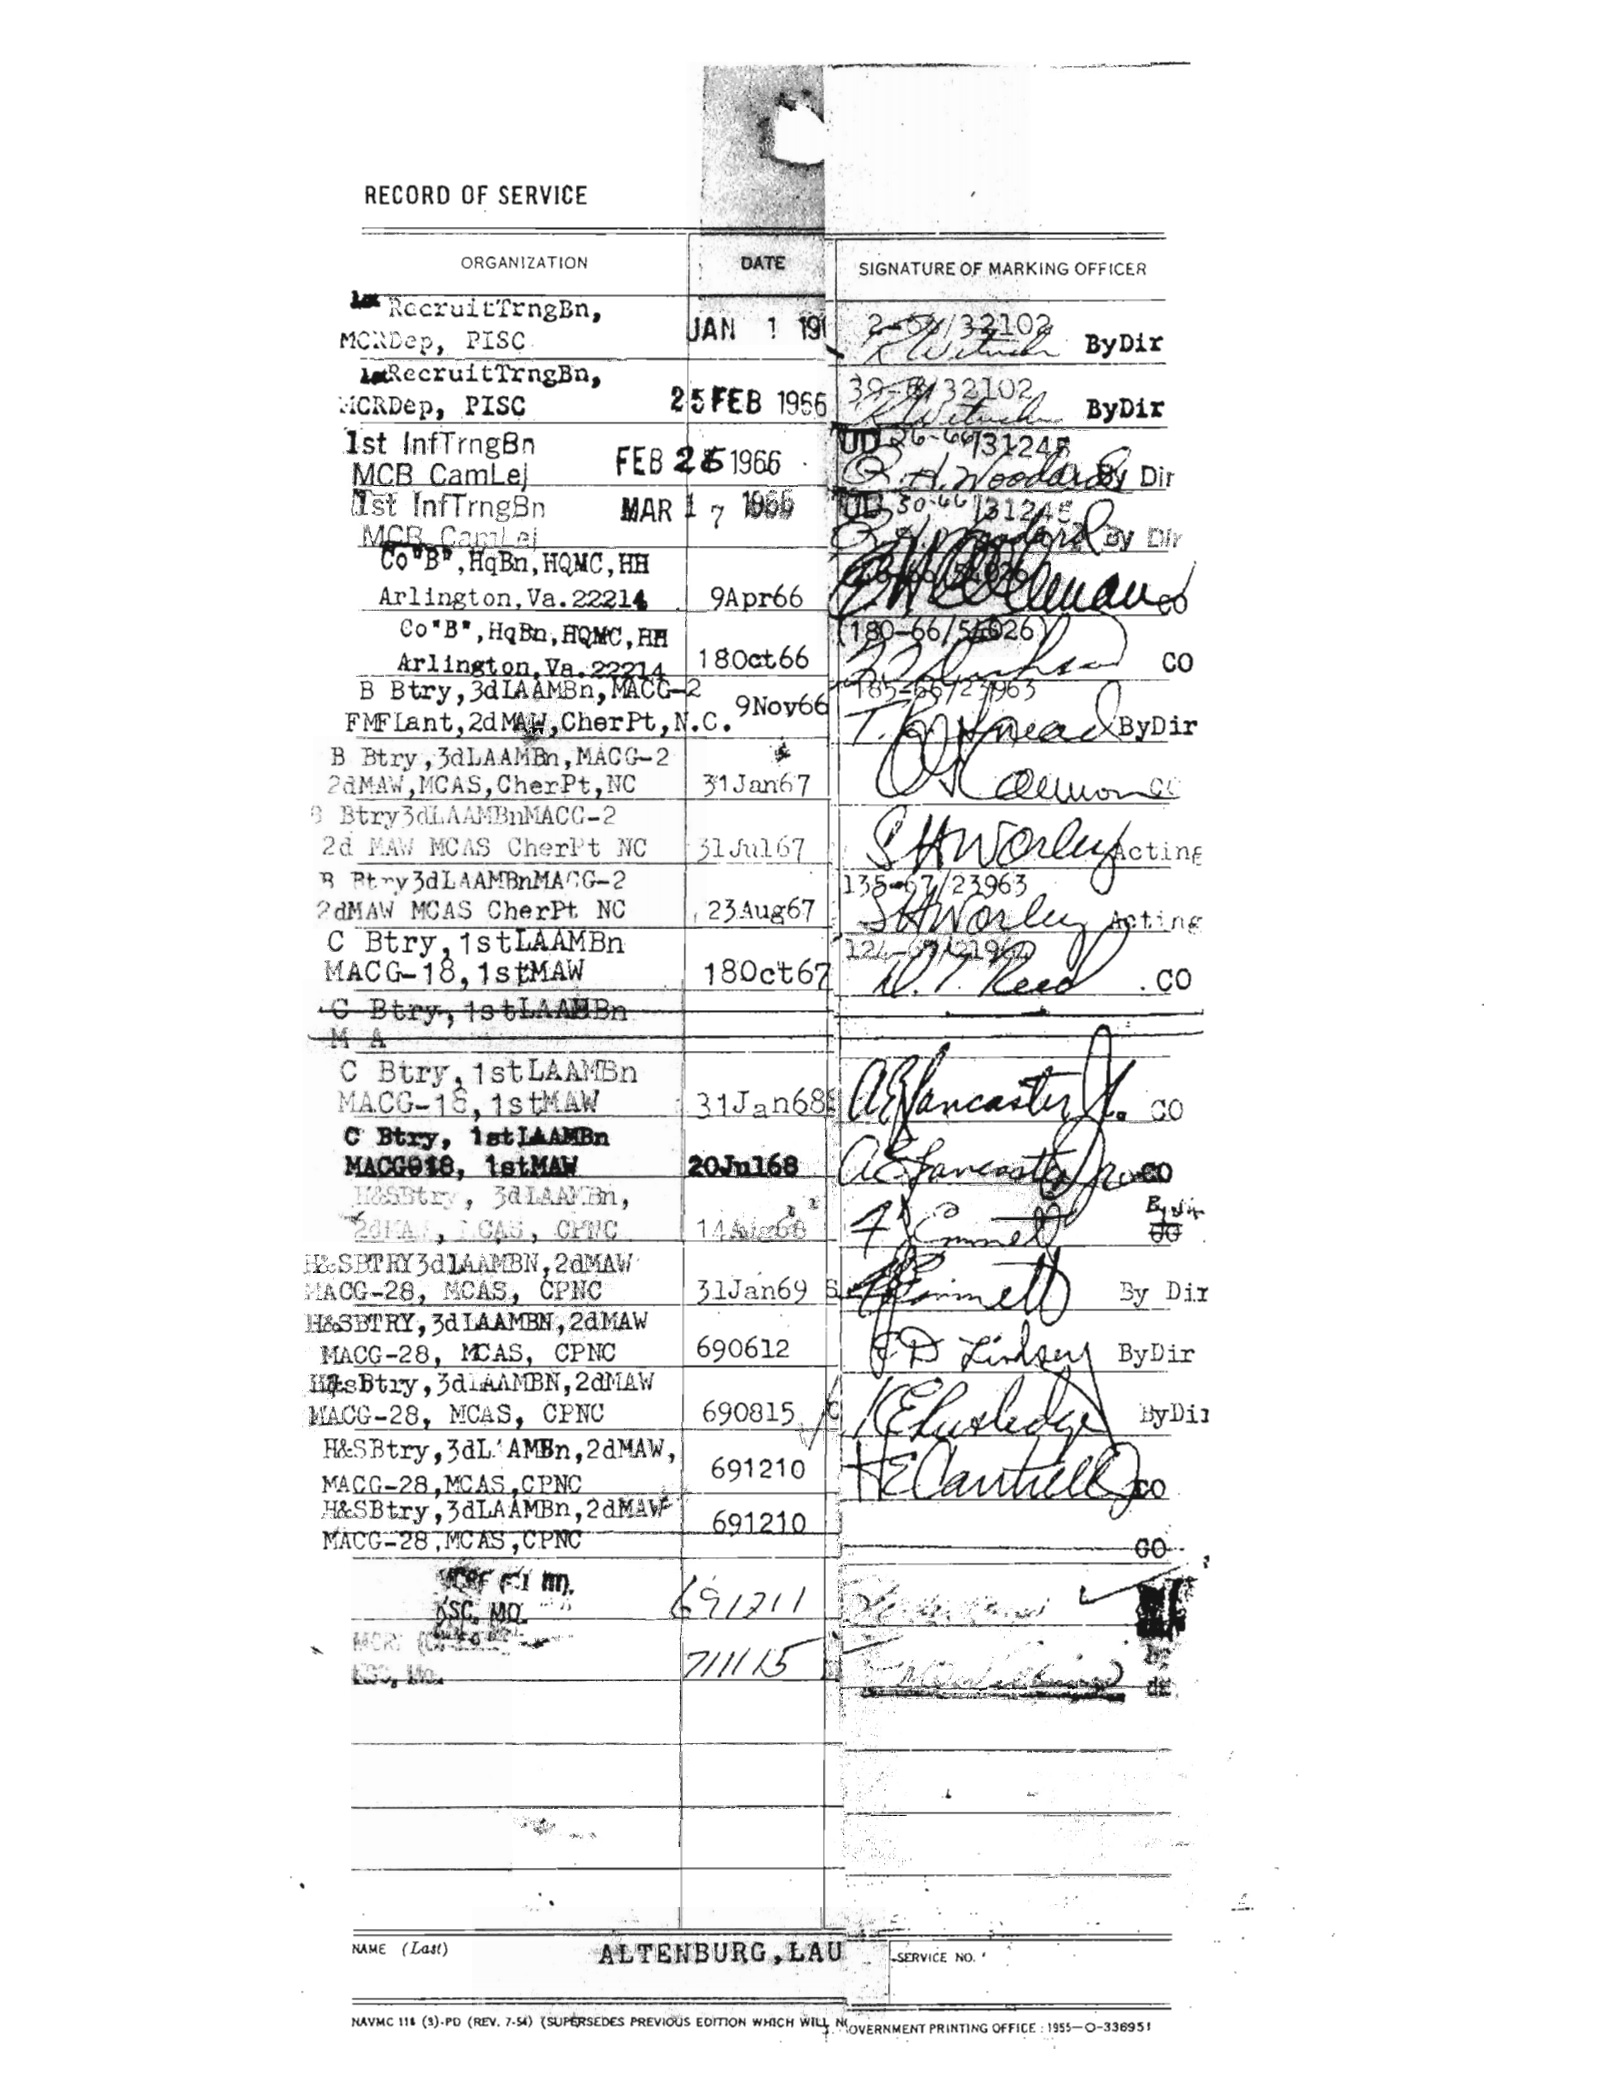 RECORD OF SERVICE
ORGANIZATION DATE SIGNATURE OF MARKING OFFICER
1st RecruitTrngBn,
MCRDep, PISC JAN 1 19 2-66/32102 ByDir
1stRecruitTrngBn,
MCRDep, PISC 25 FEB 1966 39-66/32102 ByDir
1st InfTrngBn
MCB CamLej FEB 25 1966 UD 26-66/31245 R.H. Woodard By Dir
1st InfTrngBn
MCB CamLej MAR 17 1966 UD 30-66/31245 R.H. Woodard By Dir
Co"B",HqBn,HQMC,HH
Arlington,Va.22214 9Apr66 CO
Co"B",HqBn,HQMC,HH
Arlington,Va.22214 18Oct66 (180-66/54026) CO
B Btry,3dLAAMBn,MACG-2
FMFLant,2dMAW,CherPt,N.C. 9Nov66 185-66/23963 ByDir
B Btry,3dLAAMBn,MACG-2
2dMAW,MCAS,CherPt,NC 31Jan67 CO
B Btry3dLAAMBnMACG-2
2d MAW MCAS CherPt NC 31Jul67 S H Worley Acting
B Btry3dLAAMBnMACG-2
2dMAW MCAS CherPt NC 23Aug67 135-67/23963 S H Worley Acting
C Btry,1stLAAMBn
MACG-18,1stMAW 18Oct67 124-67/21962 W. T. Reed CO
C Btry,1stLAAMBn
M A
C Btry,1stLAAMBn
MACG-18,1stMAW 31Jan68 A E Lancaster Jr. CO
C Btry, 1stLAAMBn
MACG018, 1stMAW 20Jul68 A E Lancaster Jr CO
H&SBtry, 3dLAAMBn,
2dMAW, MCAS, CPNC 14Aug68 By dir CO
H&SBTRY3dLAAMBN,2dMAW
MACG-28, MCAS, CPNC 31Jan69 By Dir
H&SBTRY,3dLAAMBN,2dMAW
MACG-28, MCAS, CPNC 690612 D Lindsey ByDir
H&sBtry,3dLAAMBN,2dMAW
MACG-28, MCAS, CPNC 690815 ByDir
H&SBtry,3dL'AMBn,2dMAW,
MACG-28,MCAS,CPNC 691210 H E Cantrell CO
H&SBtry,3dLAAMBn,2dMAW
MACG-28,MCAS,CPNC 691210 CO
KSC, MO. 691211
KSC, Mo. 711115
NAME (Last) ALTENBURG,LAU SERVICE NO.
NAVMC 118 (3)-PD (REV. 7-54) (SUPERSEDES PREVIOUS EDITION WHICH WILL NO OVERNMENT PRINTING OFFICE : 1955—O-336951